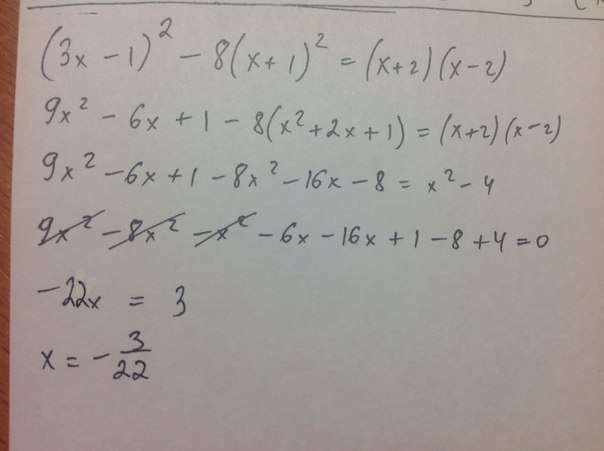 (3x − 1)² − 8(x + 1)² = (x+2)(x−2)
9x² − 6x + 1 − 8(x² + 2x + 1) = (x+2)(x−2)
9x² − 6x + 1 − 8x² − 16x − 8 = x² − 4
9x² − 8x² − x² − 6x − 16x + 1 − 8 + 4 = 0
−22x = 3
x = − 3/22